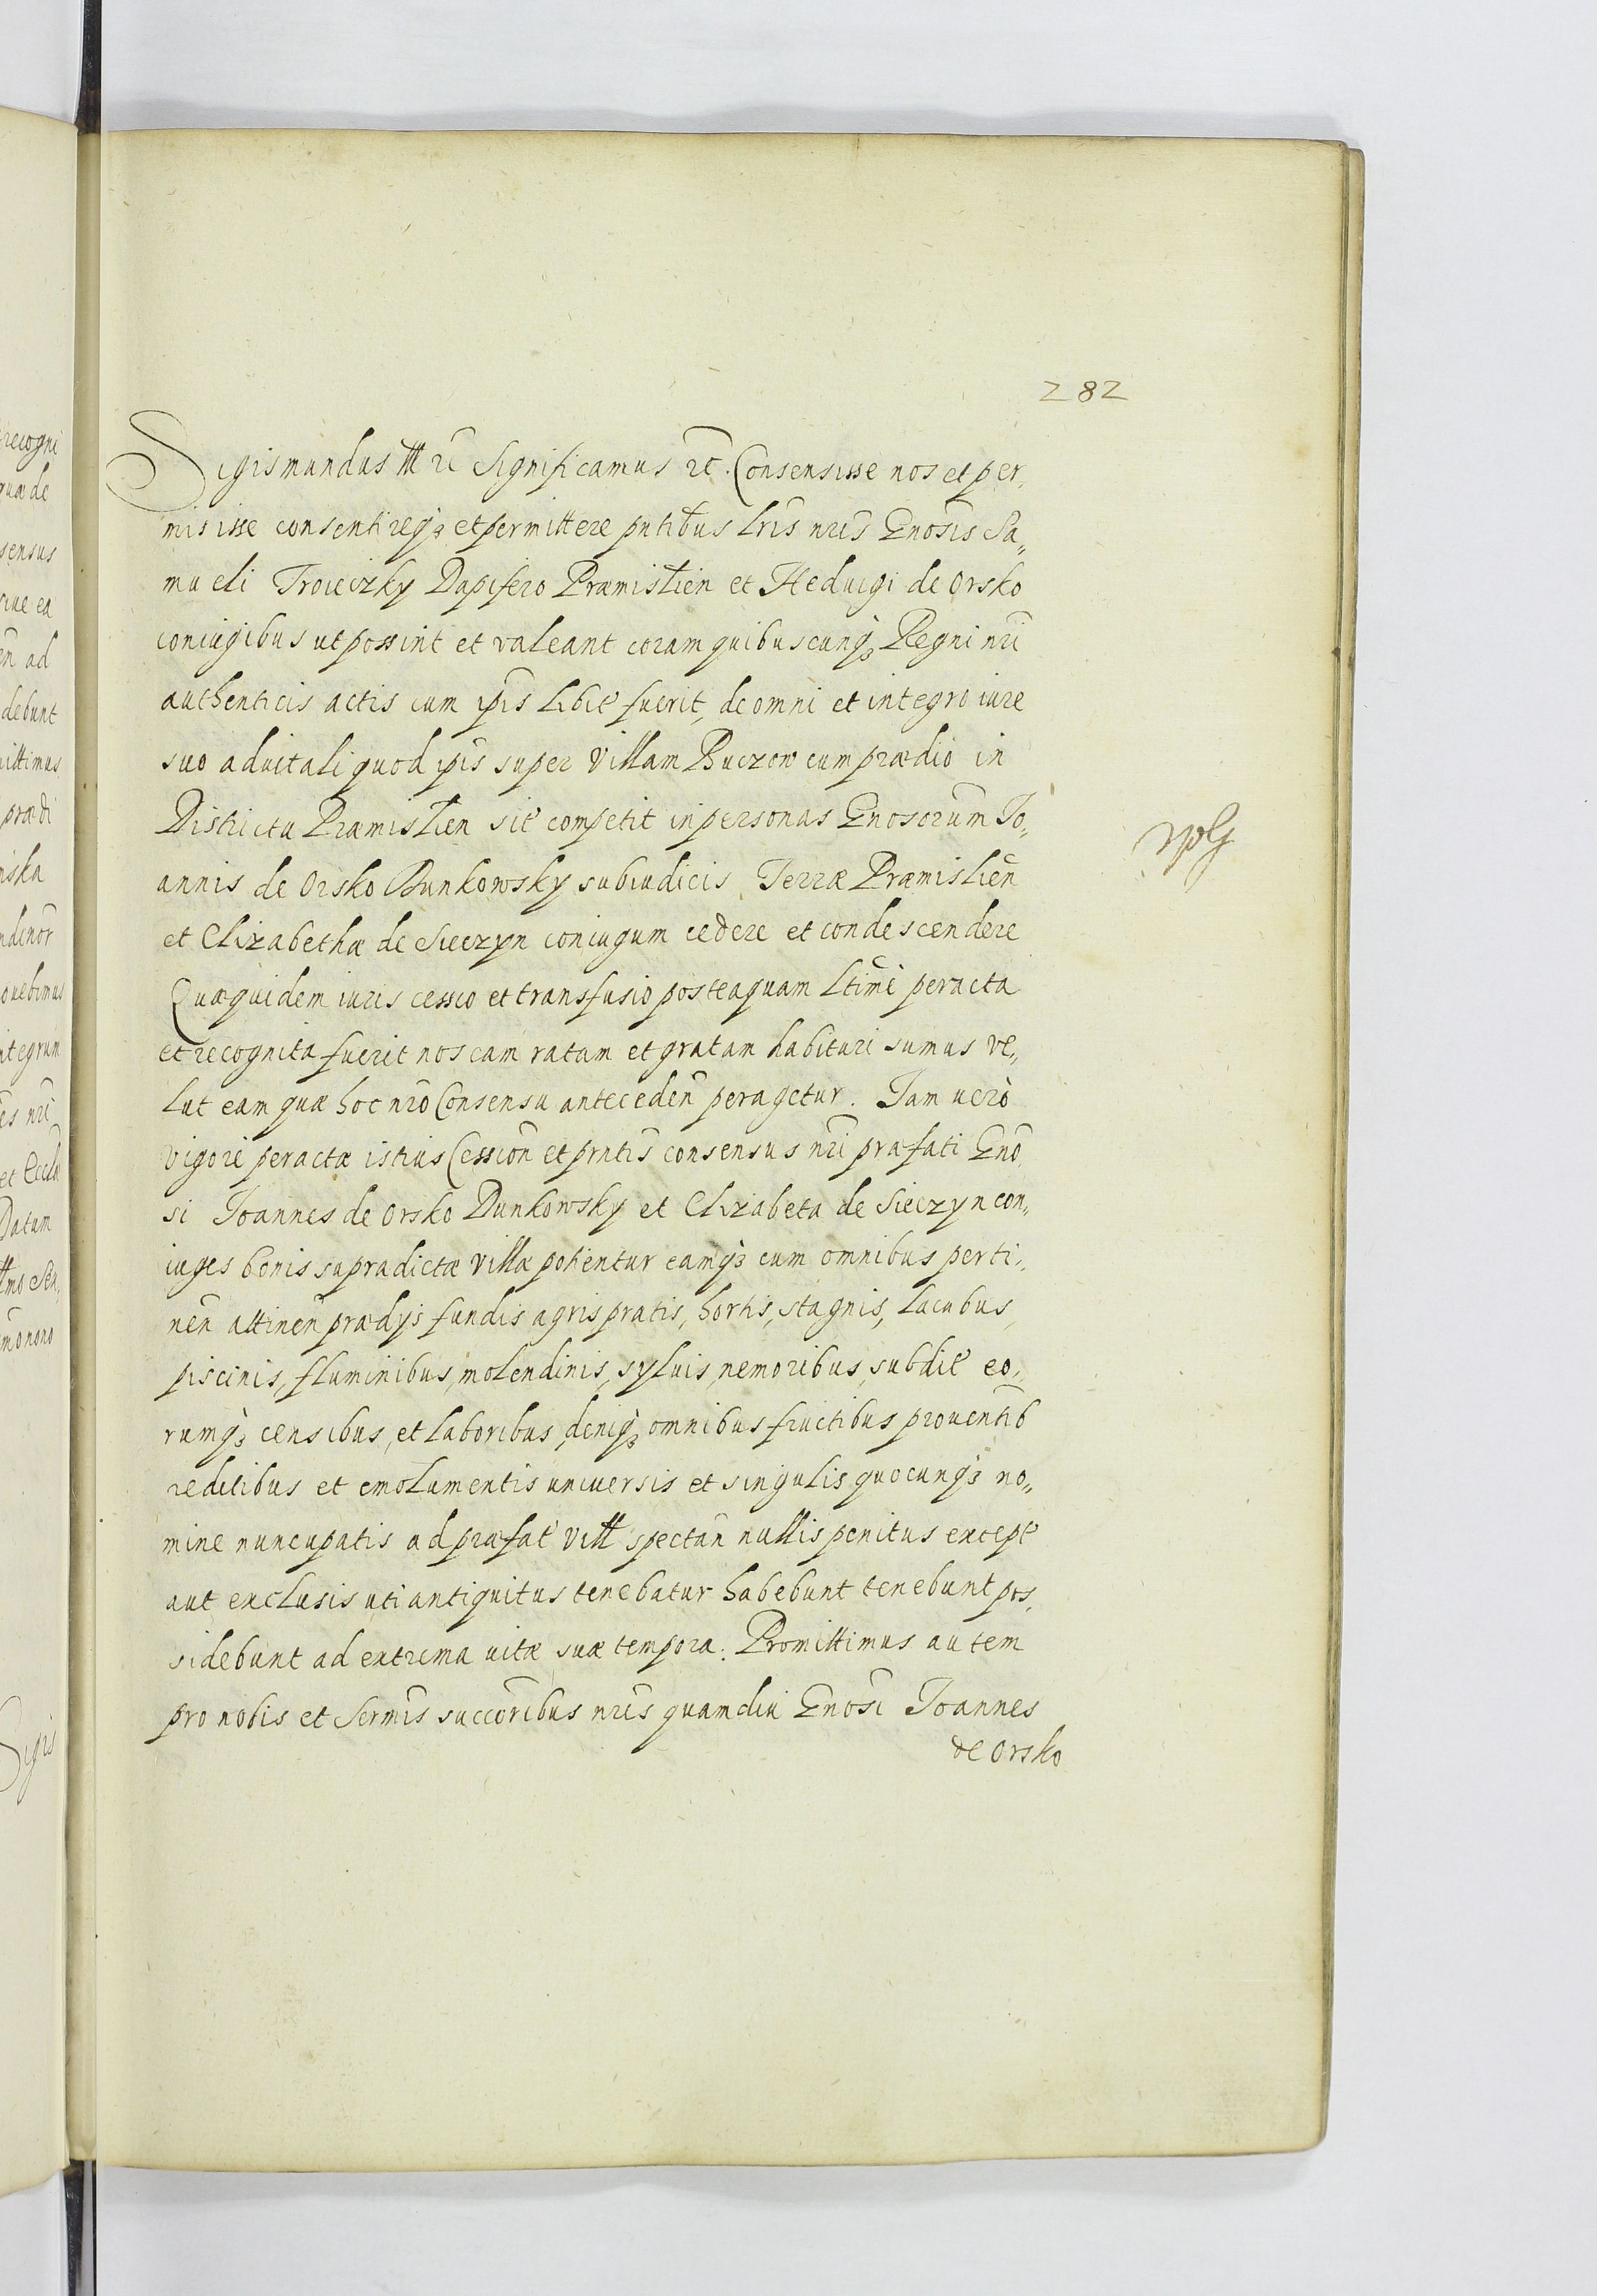 282
Sigismundus III rc Significamus rc. Consensisse nos et per„
misisse consentireq₃ et permittere pntibus lris nris Gnosis Sa„
mueli Troieczky Dapifero Præmislien et Heduigi de Orsko
coniugibus ut possint et valeant coram quibuscunq₃ Regni nri
authenticis actis cum ipis libit fuerit, de omni et integro iure
suo aduitali quod ipis super Villam Buczow cum prædio in
Districtu Præmislien sit competit in personas Gnosorum Jo„
annis de Orsko Dunkowsky subiudicis Terræ Præmislien
et Elizabethæ de Sieczyn coniugum cedere et condescendere
Quæquidem iuris cessio et transfusio posteaquam ltime peracta
et recognita fuerit nos eam ratam et gratam habituri sumus ve„
lut eam quæ hoc nro Consensu anteceden peragetur. Jam uero
vigore peractæ istius Cession et pntis consensus nri præfati Gno
si Joannes de Orsko Dunkowsky et Elizabeta de Sieczyn con„
iuges bonis supradictæ villæ potientur eamq₃ cum omnibus perti„
nen attinen prædys fundis agris pratis, hortis, stagnis, lacubus,
piscinis, fluminibus, molendinis, syluis, nemoribus, subdit eo„
rumq₃ censibus, et laboribus, deniq₃ omnibus fructibus prouentib
reditibus et emolumentis uniuersis et singulis quocunq₃ no„
mine nuncupatis ad præfat vill spectan nullis penitus except
aut exclusis uti antiquitus tenebatur habebunt tenebunt pos„
sidebunt ad extrema uitæ suæ tempora. Promittimus autem
pro nobis et Sermis succoribus nris quamdiu Gnosi Joannes
de Orsko
recogni
quæ de
sensus
siue ea
en ad
debunt
uittimus
prædi
niska
ndinor
ouebimus
ntegrum
es nri
et Eccle
Datum
mo Sen„
mo nono
Sigis